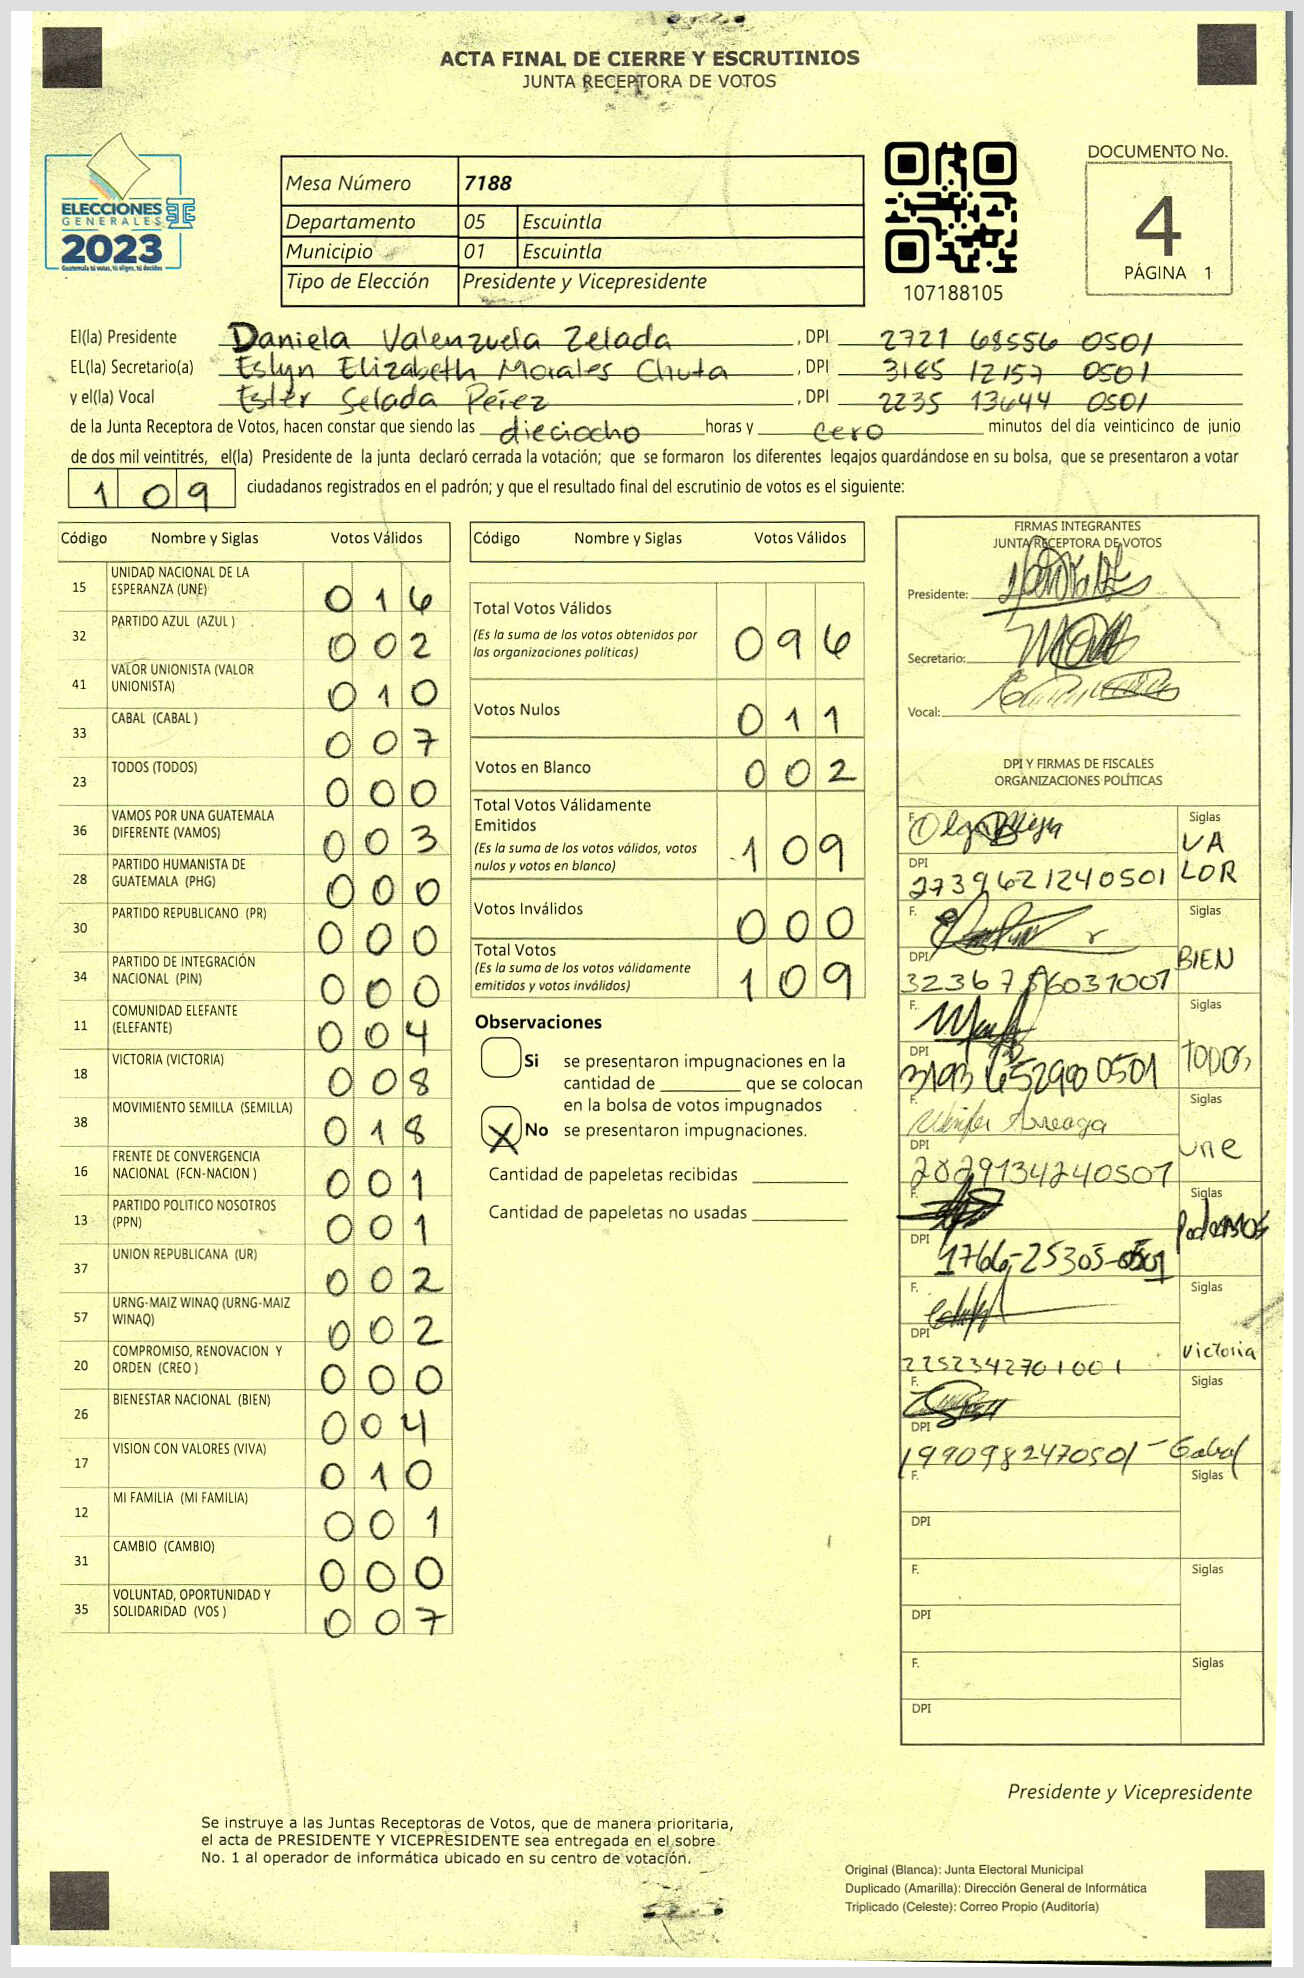 ACTA FINAL DE CIERRE Y ESCRUTINIOS
JUNTA RECEPTORA DE VOTOS
ELECCIONES
GENERALES
2023
Guatemala tú votas, tú eliges, tú decides
Mesa Número 7188
Departamento 05 Escuintla
Municipio 01 Escuintla
Tipo de Elección Presidente y Vicepresidente
107188105
DOCUMENTO No.
4
PÁGINA 1
El(la) Presidente Daniela Valenzuela Zelada, DPI 2721 68556 0501
EL(la) Secretario(a) Eslyn Elizabeth Morales Chuta, DPI 3185 12157 0501
y el(la) Vocal Ester Selada Pérez, DPI 2235 13644 0501
de la Junta Receptora de Votos, hacen constar que siendo las dieciocho horas y cero minutos del día veinticinco de junio
de dos mil veintitrés, el(la) Presidente de la junta declaró cerrada la votación; que se formaron los diferentes legajos guardándose en su bolsa, que se presentaron a votar
109 ciudadanos registrados en el padrón; y que el resultado final del escrutinio de votos es el siguiente:
Código Nombre y Siglas Votos Válidos
15 UNIDAD NACIONAL DE LA ESPERANZA (UNE) 016
32 PARTIDO AZUL (AZUL ) 002
41 VALOR UNIONISTA (VALOR UNIONISTA) 010
33 CABAL (CABAL ) 007
23 TODOS (TODOS) 000
36 VAMOS POR UNA GUATEMALA DIFERENTE (VAMOS) 003
28 PARTIDO HUMANISTA DE GUATEMALA (PHG) 000
30 PARTIDO REPUBLICANO (PR) 000
34 PARTIDO DE INTEGRACIÓN NACIONAL (PIN) 000
11 COMUNIDAD ELEFANTE (ELEFANTE) 004
18 VICTORIA (VICTORIA) 008
38 MOVIMIENTO SEMILLA (SEMILLA) 018
16 FRENTE DE CONVERGENCIA NACIONAL (FCN-NACION ) 001
13 PARTIDO POLITICO NOSOTROS (PPN) 001
37 UNION REPUBLICANA (UR) 002
57 URNG-MAIZ WINAQ (URNG-MAIZ WINAQ) 002
20 COMPROMISO, RENOVACION Y ORDEN (CREO ) 000
26 BIENESTAR NACIONAL (BIEN) 004
17 VISION CON VALORES (VIVA) 010
12 MI FAMILIA (MI FAMILIA) 001
31 CAMBIO (CAMBIO) 000
35 VOLUNTAD, OPORTUNIDAD Y SOLIDARIDAD (VOS ) 007
Código Nombre y Siglas Votos Válidos
Total Votos Válidos 096
(Es la suma de los votos obtenidos por
las organizaciones políticas)
Votos Nulos 011
Votos en Blanco 002
Total Votos Válidamente
Emitidos 109
(Es la suma de los votos válidos, votos
nulos y votos en blanco)
Votos Inválidos 000
Total Votos 109
(Es la suma de los votos válidamente
emitidos y votos inválidos)
Observaciones
Si se presentaron impugnaciones en la
cantidad de ________ que se colocan
en la bolsa de votos impugnados
X No se presentaron impugnaciones.
Cantidad de papeletas recibidas ________
Cantidad de papeletas no usadas ________
FIRMAS INTEGRANTES
JUNTA RECEPTORA DE VOTOS
Presidente:
Secretario:
Vocal:
DPI Y FIRMAS DE FISCALES
ORGANIZACIONES POLÍTICAS
F. Siglas VALOR
DPI 2739621240501
F. Siglas BIEN
DPI
F. Siglas TODOS
DPI 3193 65290 0501
F. Siglas une
DPI 2029134240501
F. Siglas Podemos
DPI 1766-25305-0501
F. Siglas Victoria
DPI 2252342701001
F. Siglas
DPI 1990982470501 - Cabal
F. Siglas
DPI
F. Siglas
DPI
F. Siglas
DPI
Presidente y Vicepresidente
Se instruye a las Juntas Receptoras de Votos, que de manera prioritaria,
el acta de PRESIDENTE Y VICEPRESIDENTE sea entregada en el sobre
No. 1 al operador de informática ubicado en su centro de votación.
Original (Blanca): Junta Electoral Municipal
Duplicado (Amarilla): Dirección General de Informática
Triplicado (Celeste): Correo Propio (Auditoría)